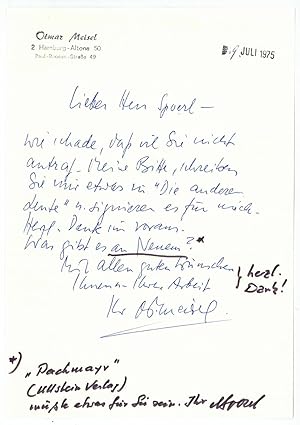 Otmar Meisel
2 Hamburg-Altona 50
Paul-Roosen-Straße 49
9. JULI 1975
Lieber Herr Spoerl –
wie schade, daß ich Sie nicht
antraf. Meine Bitte, schreiben
Sie mir etwas in "Die anderen
Leute" u. signieren es für mich.
Herzl. Dank im voraus.
Was gibt es an Neuem? *
Mit allen guten Wünschen
Ihnen u. Ihrer Arbeit
Ihr OMeisel.
} herzl.
Dank!
*) „Pachmayr"
(Ullstein Verlag)
müßte etwas für Sie sein. Ihr ASpoerl